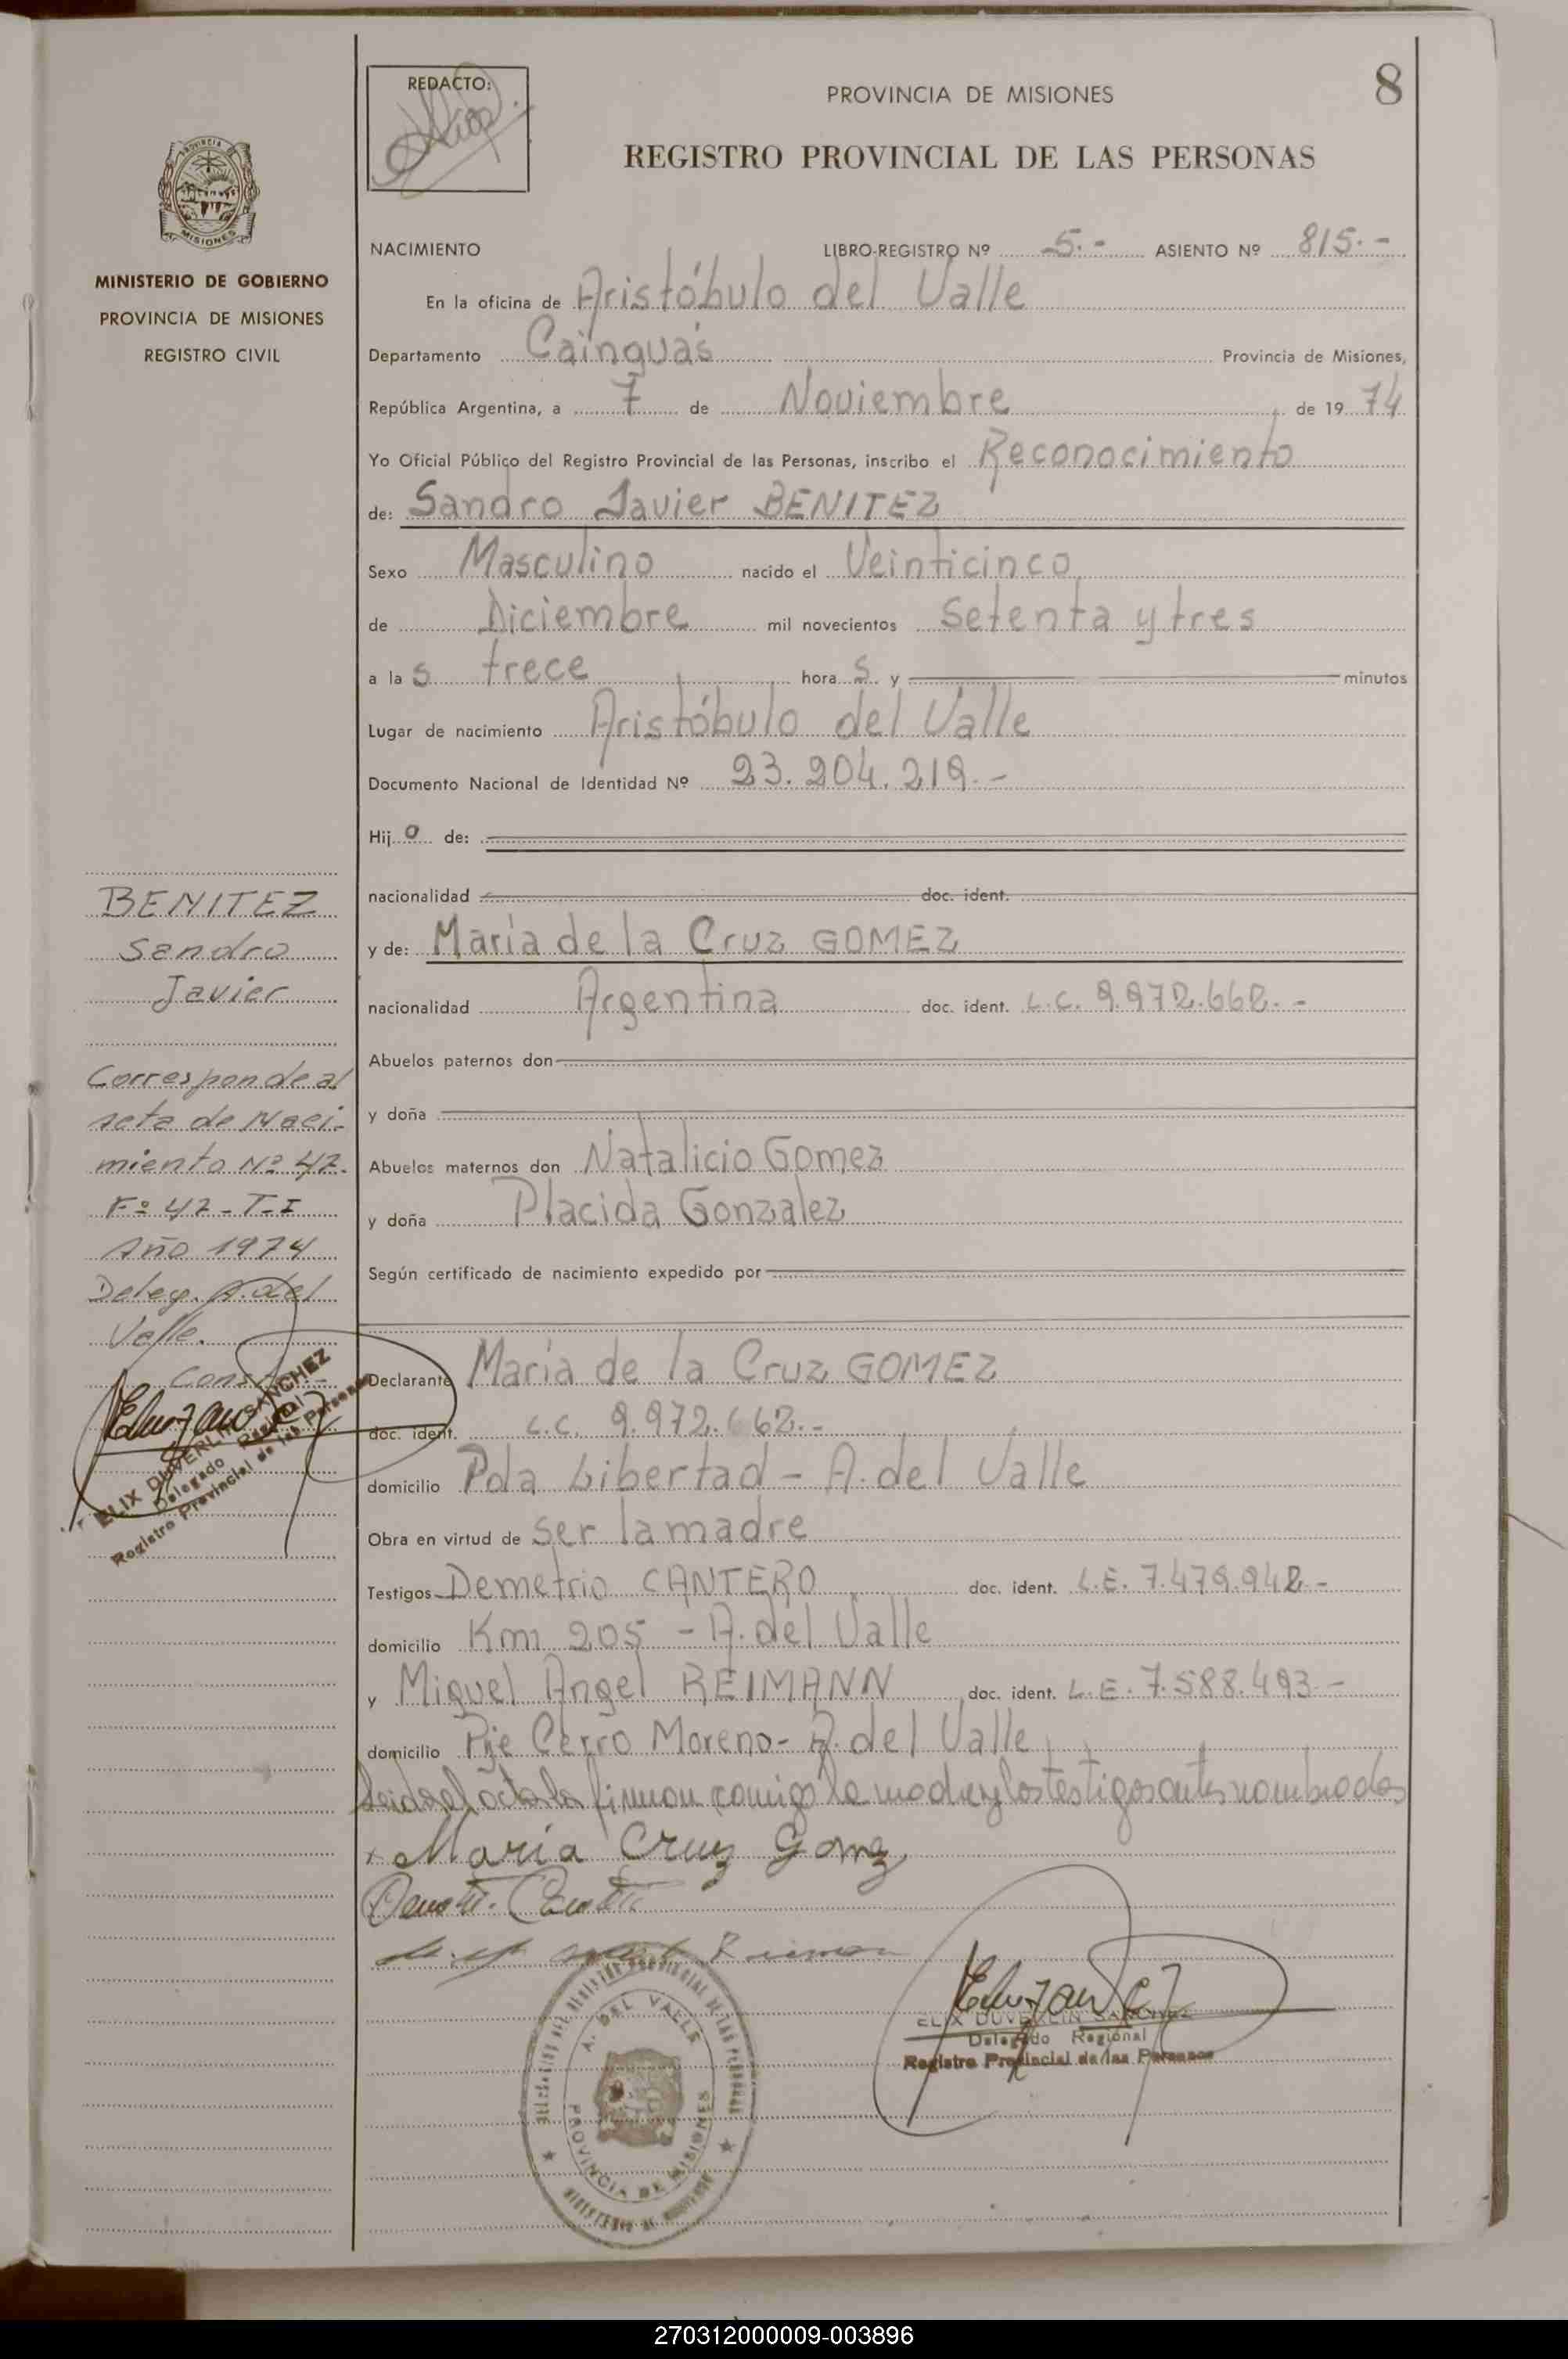 8
REDACTO:
PROVINCIA DE MISIONES
REGISTRO PROVINCIAL DE LAS PERSONAS
MISIONES
MINISTERIO DE GOBIERNO
PROVINCIA DE MISIONES
REGISTRO CIVIL
NACIMIENTO LIBRO-REGISTRO Nº 5.- ASIENTO Nº 815.-
En la oficina de Aristóbulo del Valle
Departamento Cainguás Provincia de Misiones,
República Argentina, a 7 de Noviembre de 1974
Yo Oficial Público del Registro Provincial de las Personas, inscribo el Reconocimiento
de: Sandro Javier BENITEZ
Sexo Masculino nacido el Veinticinco
de Diciembre mil novecientos Setenta y tres
a la s trece hora s y minutos
Lugar de nacimiento Aristóbulo del Valle
Documento Nacional de Identidad Nº 23.204.219.-
Hij o de:
nacionalidad doc. ident.
y de: María de la Cruz GOMEZ
nacionalidad Argentina doc. ident. L.C. 9.972.662.-
Abuelos paternos don
y doña
Abuelos maternos don Natalicio Gomez
y doña Placida Gonzalez
Según certificado de nacimiento expedido por
Declarante María de la Cruz GOMEZ
doc. ident. L.C. 9.972.662.-
domicilio Pda Libertad - A. del Valle
Obra en virtud de ser la madre
Testigos Demetrio CANTERO doc. ident. L.E. 7.479.942.-
domicilio Km 205 - A. del Valle
y Miguel Angel REIMANN doc. ident. L.E. 7.588.493.-
domicilio Pje Cerro Moreno - A. del Valle
Leida el acta la firman comigo la madre y los testigos antes nombrados
Maria Cruz Gomez
ELIX DUVERLIN SANCHEZ
Delegado Regional
Registro Provincial de las Personas
A. DEL VALLE
PROVINCIA DE MISIONES
BENITEZ
Sandro
Javier
Corresponde al
acta de Naci-
miento Nº 42.
Fº 42 - T. I
Año 1974
Deleg. A. del
Valle.
ELIX DUVERLIN SANCHEZ
Delegado Regional
Registro Provincial de las Personas
270312000009-003896